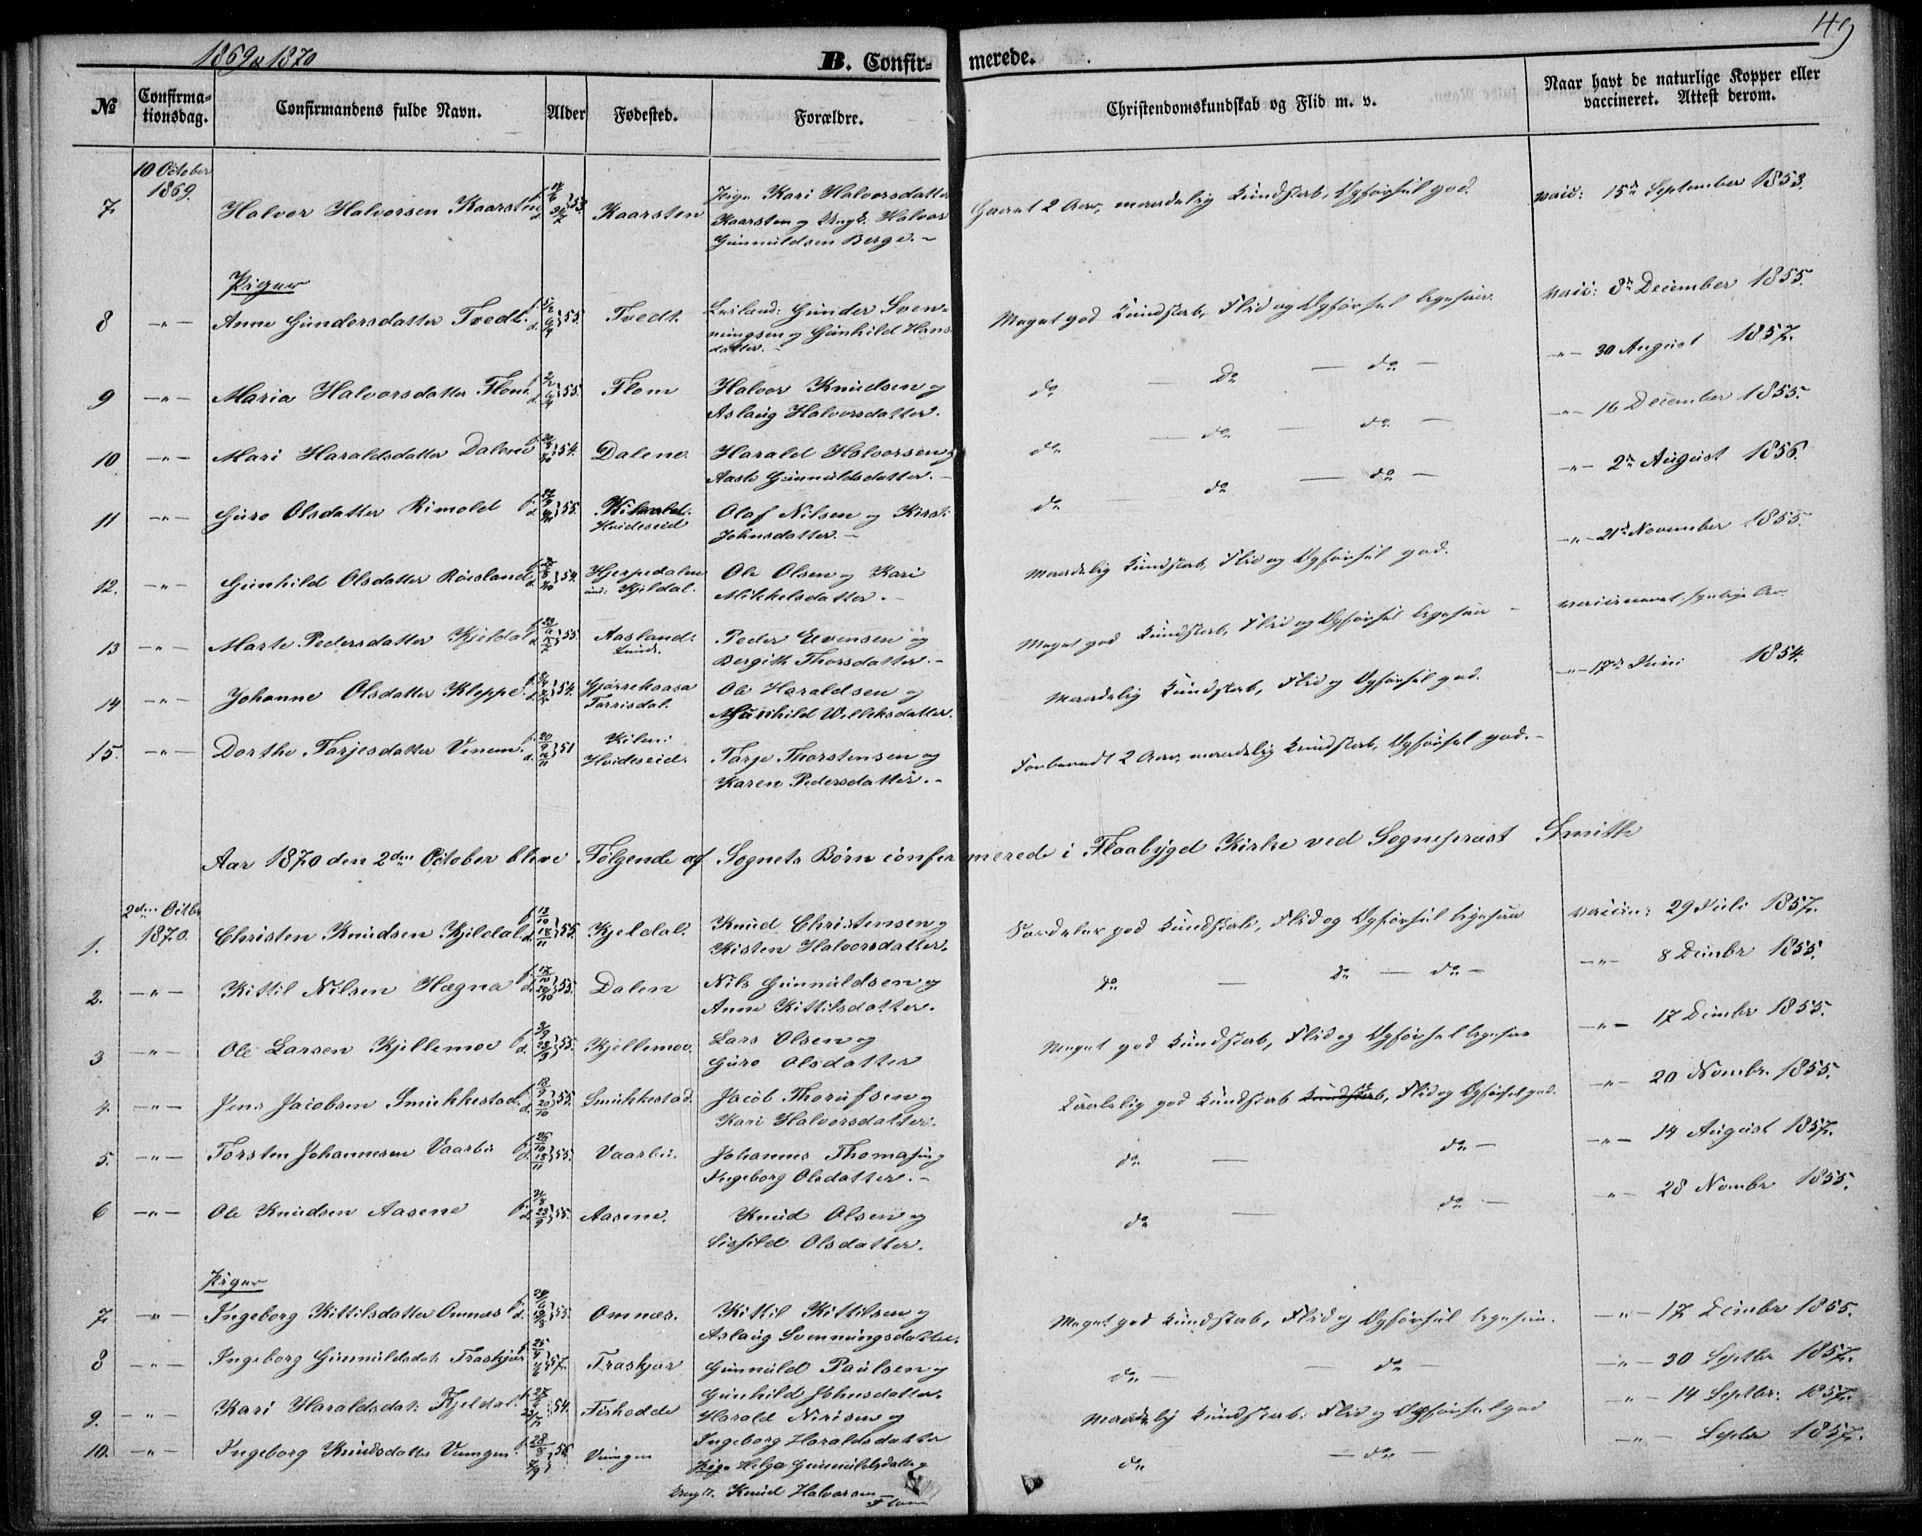 1869 & 1870
B. Confir-merede.
49
№ Confirma-tionsdag. Confirmandens fulde Navn. Alder Fødested. Forældre. Christendomskundskab og Flid m. v. Naar havt de naturlige Kopper eller vaccineret. Attest derom.
10 October 1869.
7. Halvor Halvorsen Kaarsten Kaarsten Pige Kari Halvorsdatter Kaarsten og Ungk. Halvor Gunnuldsen Berge. vacc: 15de September 1853.
Piger
8 -"- Anne Gundersdatter Tvedt. f. d. 55. Tvedt. Leiland: Gunder Svenningsen og Gunhild Hansdatter. Meget god Kundskab, Flid og Opførsel ligesaa. vacc: 8de December 1855.
9 -"- Maria Halvorsdatter Flom 55. Flom Halvor Knudsen og Aslaug Halvorsdatter. do — Do — do — -"- 30 August 1857.
10 -"- Mari Haraldsdatter Dalene 54. Dalene Harald Halvorsen og Aaste Gunnuldsdatter. do — do — do — -"- 16 December 1855.
11 -"- Guro Olsdatter Rimold 55. Hvideseid Olaf Nilsen og Kirsti Johnsdatter. do — do — do — -"- 2de August 1856.
12. -"- Gunhild Olsdatter Røisland 54. Hjerpedalen und: Kjeldal. Ole Olsen og Kari Mikkelsdatter. Maadelig Kundskab, Flid og Opførsel god. -"- 21de November 1855.
13 -"- Marte Pedersdatter Kjeldal 55. Aasland: Lunde. Peder Evensen og Bergith Thorsdatter. Meget god Kundskab, Flid og Opførsel ligesaa
14 -"- Johanne Olsdatter Kleppe. 54. Gjørrekaasa Tørrisdal. Ole Haraldsen og Gunhild Vetleksdatter. Maadelig Kundskab, Flid og Opførsel god. -"- 17de Juni 1854.
15. -"- Dorthe Tarjesdatter Venem 51 Kilen: Hvideseid. Tarje Thorstensen og Karen Pedersdatter. Forberedt 2 Aar, maadelig Kundskab, Opførsel god.
Aar 1870 den 2den October bleve Følgende af Sognets Børn confirmerede i Flaabygd Kirke ved Sognepræst Smith
2den Octbr 1870.
1. Christen Knudsen Kjeldal 55. Kjeldal. Knud Christensen og Kisten Halvorsdatter. Særdeles god Kundskab, Flid og Opførsel ligesaa vaccin: 29 Juli 1857.
2. -"- Kittil Nilsen Hægna 55. Dalen Nils Gunnuldsen og Anne Kittilsdatter. do — do — do — -"- 8 Decembr 1855.
3 -"- Ole Larsen Kjellemoe 55. Kjellemoe. Lars Olsen og Guro Olsdatter Meget god Kundskab, Flid og Opførsel ligesaa -"- 17 Decmbr 1855.
4. -"- Jens Jacobsen Smukkestad. 55. Smukkestad. Jacob Thorufsen og Kari Halvorsdatter. Temmelig god Kundskab Kundskab, Flid og Opførsel god. -"- 20 Novmbr. 1855.
5. -"- Torsten Johannesen Vaarbu 55. Vaarbu. Johannes Thomasen og Ingeborg Olsdatter. do — do — -"- 14 August 1857.
6 -"- Ole Knudsen Aasene 55. Aasene. Knud Olsen og Sigild Olsdatter. do — do — -"- 28 Novmbr 1855.
Piger
7. -"- Ingeborg Kittilsdatter Omnæs 55. Omnæs. Kittil Kittilsen og Aslaug Svenningsdatter. Meget god Kundskab, Flid og Opførsel ligesaa. -"- 17 Decmbr 1855.
8 -"- Ingeborg Gunnuldsdat: Fraskjær 57. Fraskjær Gunnuld Paulsen og Gunhild Johnsdatter. do — do — -"- 30 Septbr 1857.
9. -"- Kari Haraldsdat: Kjeldal. 54. Fiskodde Harald Nirisen og Ingeborg Haraldsdatter Maadelig Kundskab, Flid og Opførsel god -"- 14 Septbr. 1857.
10. -"- Ingeborg Knudsdatter Vrangen 56. Vrangen Pige Helga Gunnuldsdatter og Ungk. Knud Halvorsen Flom do — do — -"- Septbr 1857.